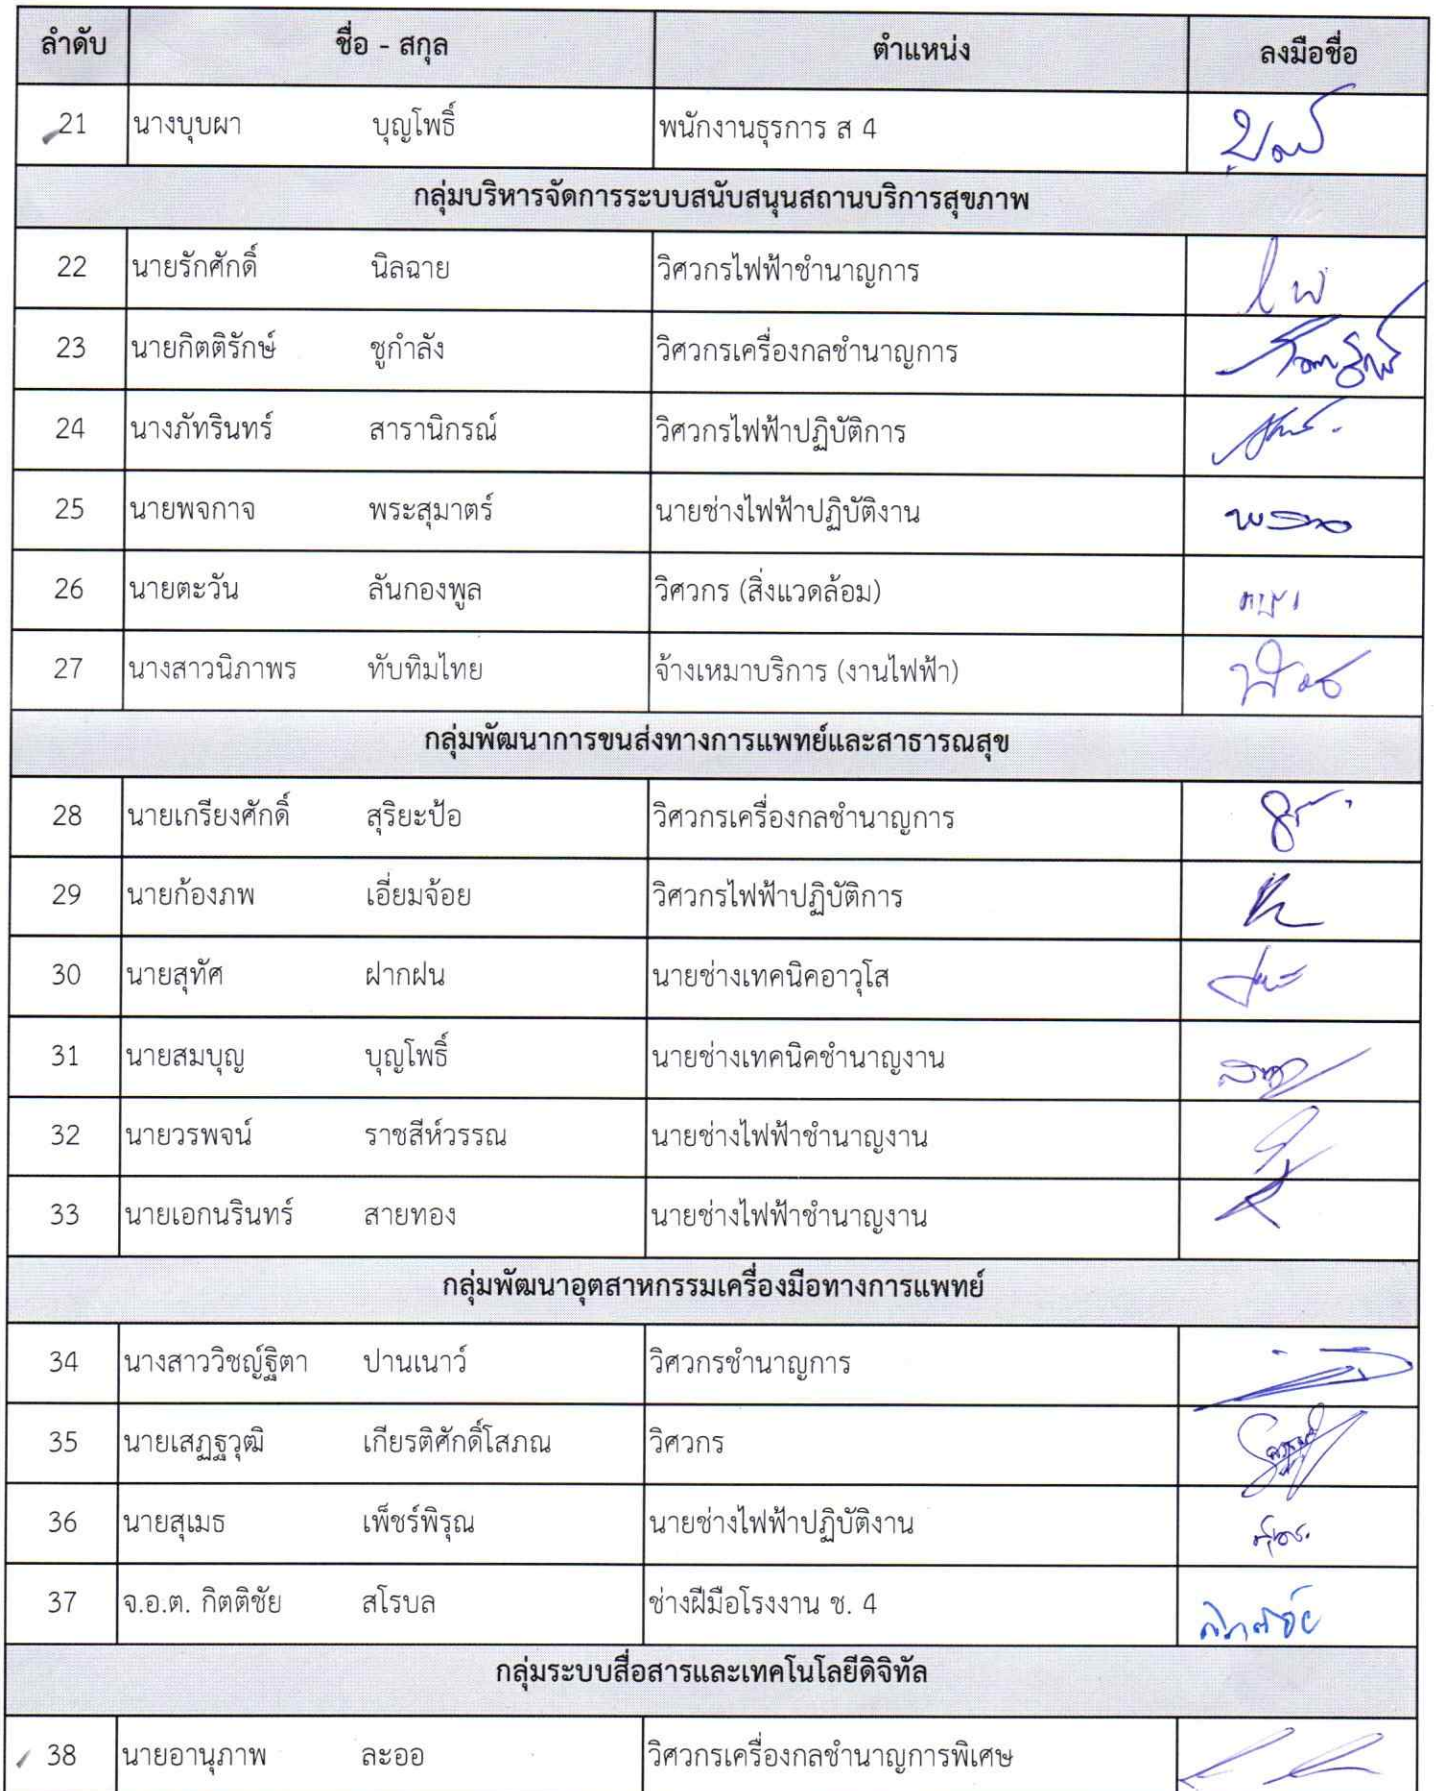 ลำดับ ชื่อ - สกุล ตำแหน่ง ลงมือชื่อ
21 นางบุบผา บุญโพธิ์ พนักงานธุรการ ส 4
กลุ่มบริหารจัดการระบบสนับสนุนสถานบริการสุขภาพ
22 นายรักศักดิ์ นิลฉาย วิศวกรไฟฟ้าชำนาญการ
23 นายกิตติรักษ์ ชูกำลัง วิศวกรเครื่องกลชำนาญการ
24 นางภัทรินทร์ สารานิกรณ์ วิศวกรไฟฟ้าปฏิบัติการ
25 นายพจกาจ พระสุมาตร์ นายช่างไฟฟ้าปฏิบัติงาน
26 นายตะวัน ลันกองพูล วิศวกร (สิ่งแวดล้อม)
27 นางสาวนิภาพร ทับทิมไทย จ้างเหมาบริการ (งานไฟฟ้า)
กลุ่มพัฒนาการขนส่งทางการแพทย์และสาธารณสุข
28 นายเกรียงศักดิ์ สุริยะป้อ วิศวกรเครื่องกลชำนาญการ
29 นายก้องภพ เอี่ยมจ้อย วิศวกรไฟฟ้าปฏิบัติการ
30 นายสุทัศ ฝากฝน นายช่างเทคนิคอาวุโส
31 นายสมบุญ บุญโพธิ์ นายช่างเทคนิคชำนาญงาน
32 นายวรพจน์ ราชสีห์วรรณ นายช่างไฟฟ้าชำนาญงาน
33 นายเอกนรินทร์ สายทอง นายช่างไฟฟ้าชำนาญงาน
กลุ่มพัฒนาอุตสาหกรรมเครื่องมือทางการแพทย์
34 นางสาววิชญ์ฐิตา ปานเนาว์ วิศวกรชำนาญการ
35 นายเสฏฐวุฒิ เกียรติศักดิ์โสภณ วิศวกร
36 นายสุเมธ เพ็ชร์พิรุณ นายช่างไฟฟ้าปฏิบัติงาน
37 จ.อ.ต. กิตติชัย สโรบล ช่างฝีมือโรงงาน ช. 4 กิตติชัย
กลุ่มระบบสื่อสารและเทคโนโลยีดิจิทัล
38 นายอานุภาพ ละออ วิศวกรเครื่องกลชำนาญการพิเศษ